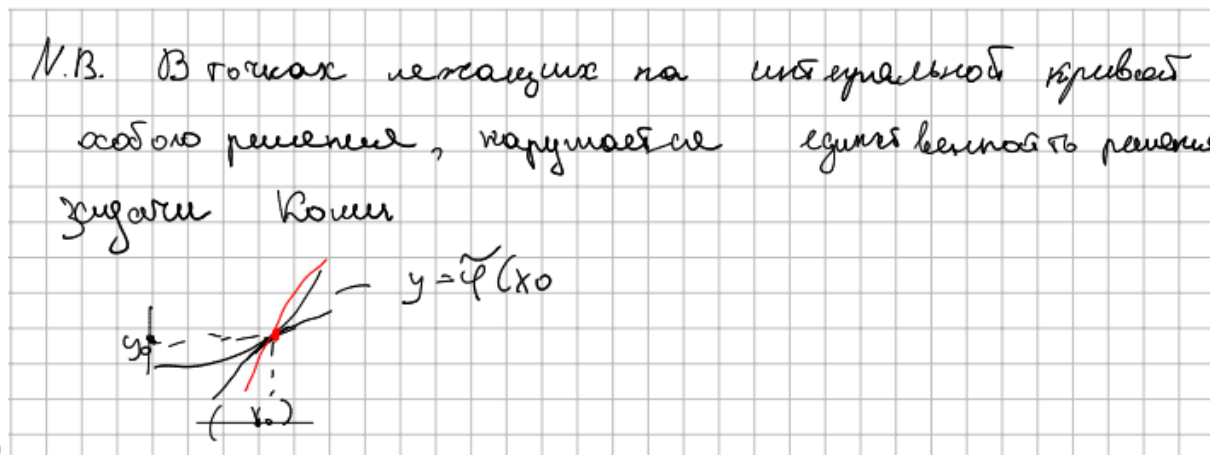 N.B. В точках лежащих на интегральной кривой
особого решения, нарушается единственность решения
задачи Коши
y = φ̃(x0
y₀
( x₀ )